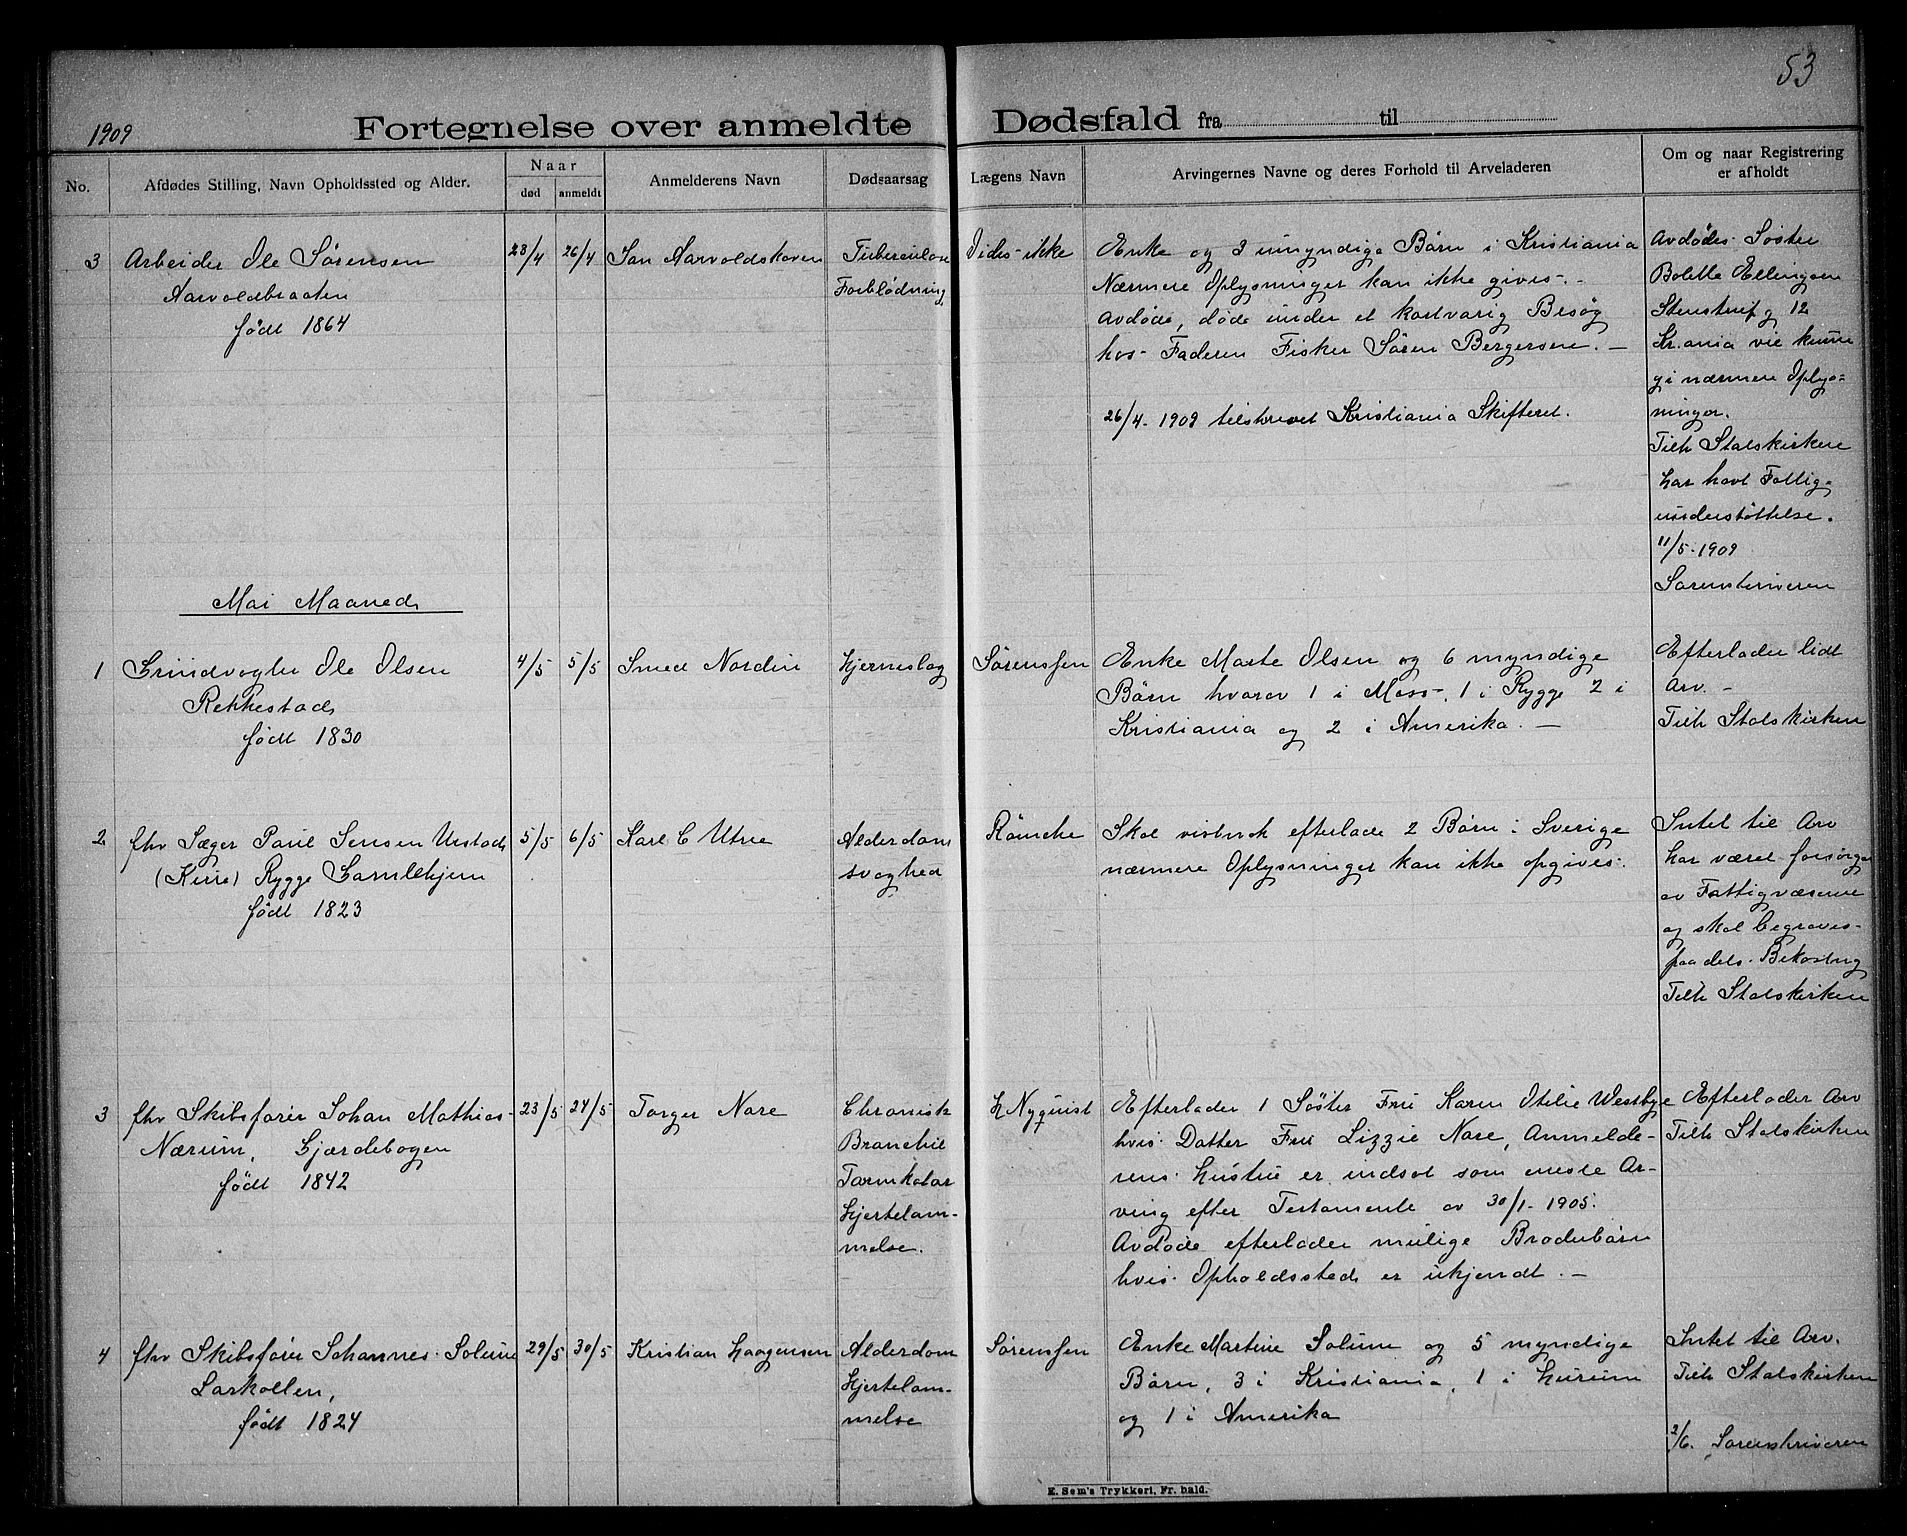 53
1909
Fortegnelse over anmeldte Dødsfald fra til
No.
Afdødes Stilling, Navn Opholdssted og Alder.
Naar
død
anmeldt
Anmelderens Navn
Dødsaarsag
Lægens Navn
Arvingernes Navne og deres Forhold til Arveladeren
Om og naar Registrering
er afholdt
3
Arbeider Ole Sörensen
Aarvoldbraaten
født 1864
23/4
26/4
Jan Aarvoldskoven
Tuberculose
Forblødning
Vides ikke
Enke og 3 umyndige Børn i Kristiania
Nærmere Oplysninger kan ikke gives. -
Avdøde, døde under et kortvarig Besøg
hos Faderen Fisker Sören Bergersen. -
26/4. 1909 tilskrevet Kristiania Skifteret.
Avdødes Søster
Bolette Ellingsen
Stenstrupg 12
Kr.ania vil kunne
gi nærmere Oplys-
ninger.
Tilh Statskirken
har havt Fattig-
understøttelse.
11/5. 1909
Sorenskriveren
Mai Maaned
1
Grindvogter Ole Olsen
Rekkestad
født 1830
4/5
5/5
Smed Nordin
Hjerneslag
Sørenssen
Enke Marte Olsen og 6 myndige
Børn hvorav 1 i Moss, 1 i Rygge 2 i
Kristiania og 2 i Amerika. -
Efterlader lidt
Arv. -
Tilh Statskirken
2
fhv Jæger Paul Jensen Urstad
(Kure) Rygge Gamlehjem
født 1823
5/5
6/5
Karl C Utne
Alderdoms
svaghed
Römcke
Skal vistnok efterlade 2 Børn i Sverige
nærmere Oplysninger kan ikke opgives.
Intet til Arv
har været forsørget
av Fattigvæsenet
og skal begraves
paa dets Bekostng
Tilh Statskirken
3
fhv Skibsfører Johan Mathias
Nærum, Gjærdebogen
født 1842
23/5
24/5
Torger Nare
Chronisk
Bronchit
Tarmkatar
Hjertelam-
melse.
H Nyquist
Efterlader 1 Søster Fru Karen Otilie Westbye
hvis Datter Fru Lizzie Nare, Anmelde-
rens Hustru er indsat som eneste Ar-
ving efter Testamente av 30/1. 1905.
Avdøde efterlader mulige Broderbørn
hvis Opholdssted er ukjendt. -
Efterlader Arv
Tilh Statskirken
4
fhv Skibsfører Johannes Solum
Larkollen,
født 1824
29/5
30/5
Kristian Haagensen
Alderdom
Hjertelam-
melse
Sørenssen
Enke Martine Solum og 5 myndige
Børn, 3 i Kristiania, 1 i Hurum
og 1 i Amerika
Intet til Arv.
Tilh Statskirken
2/6. Sorenskriveren
E. Sem's Trykkeri, Fr.hald.